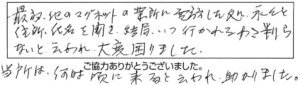 最初、他のマグネットの業所に電話した処、え〜と
住所、氏名を聞き、結局、いつ行かれるか判ら
ないと云われ、大変困りました。
ご協力ありがとうございました。
当所は、何時頃に来ると云われ、助かりました。